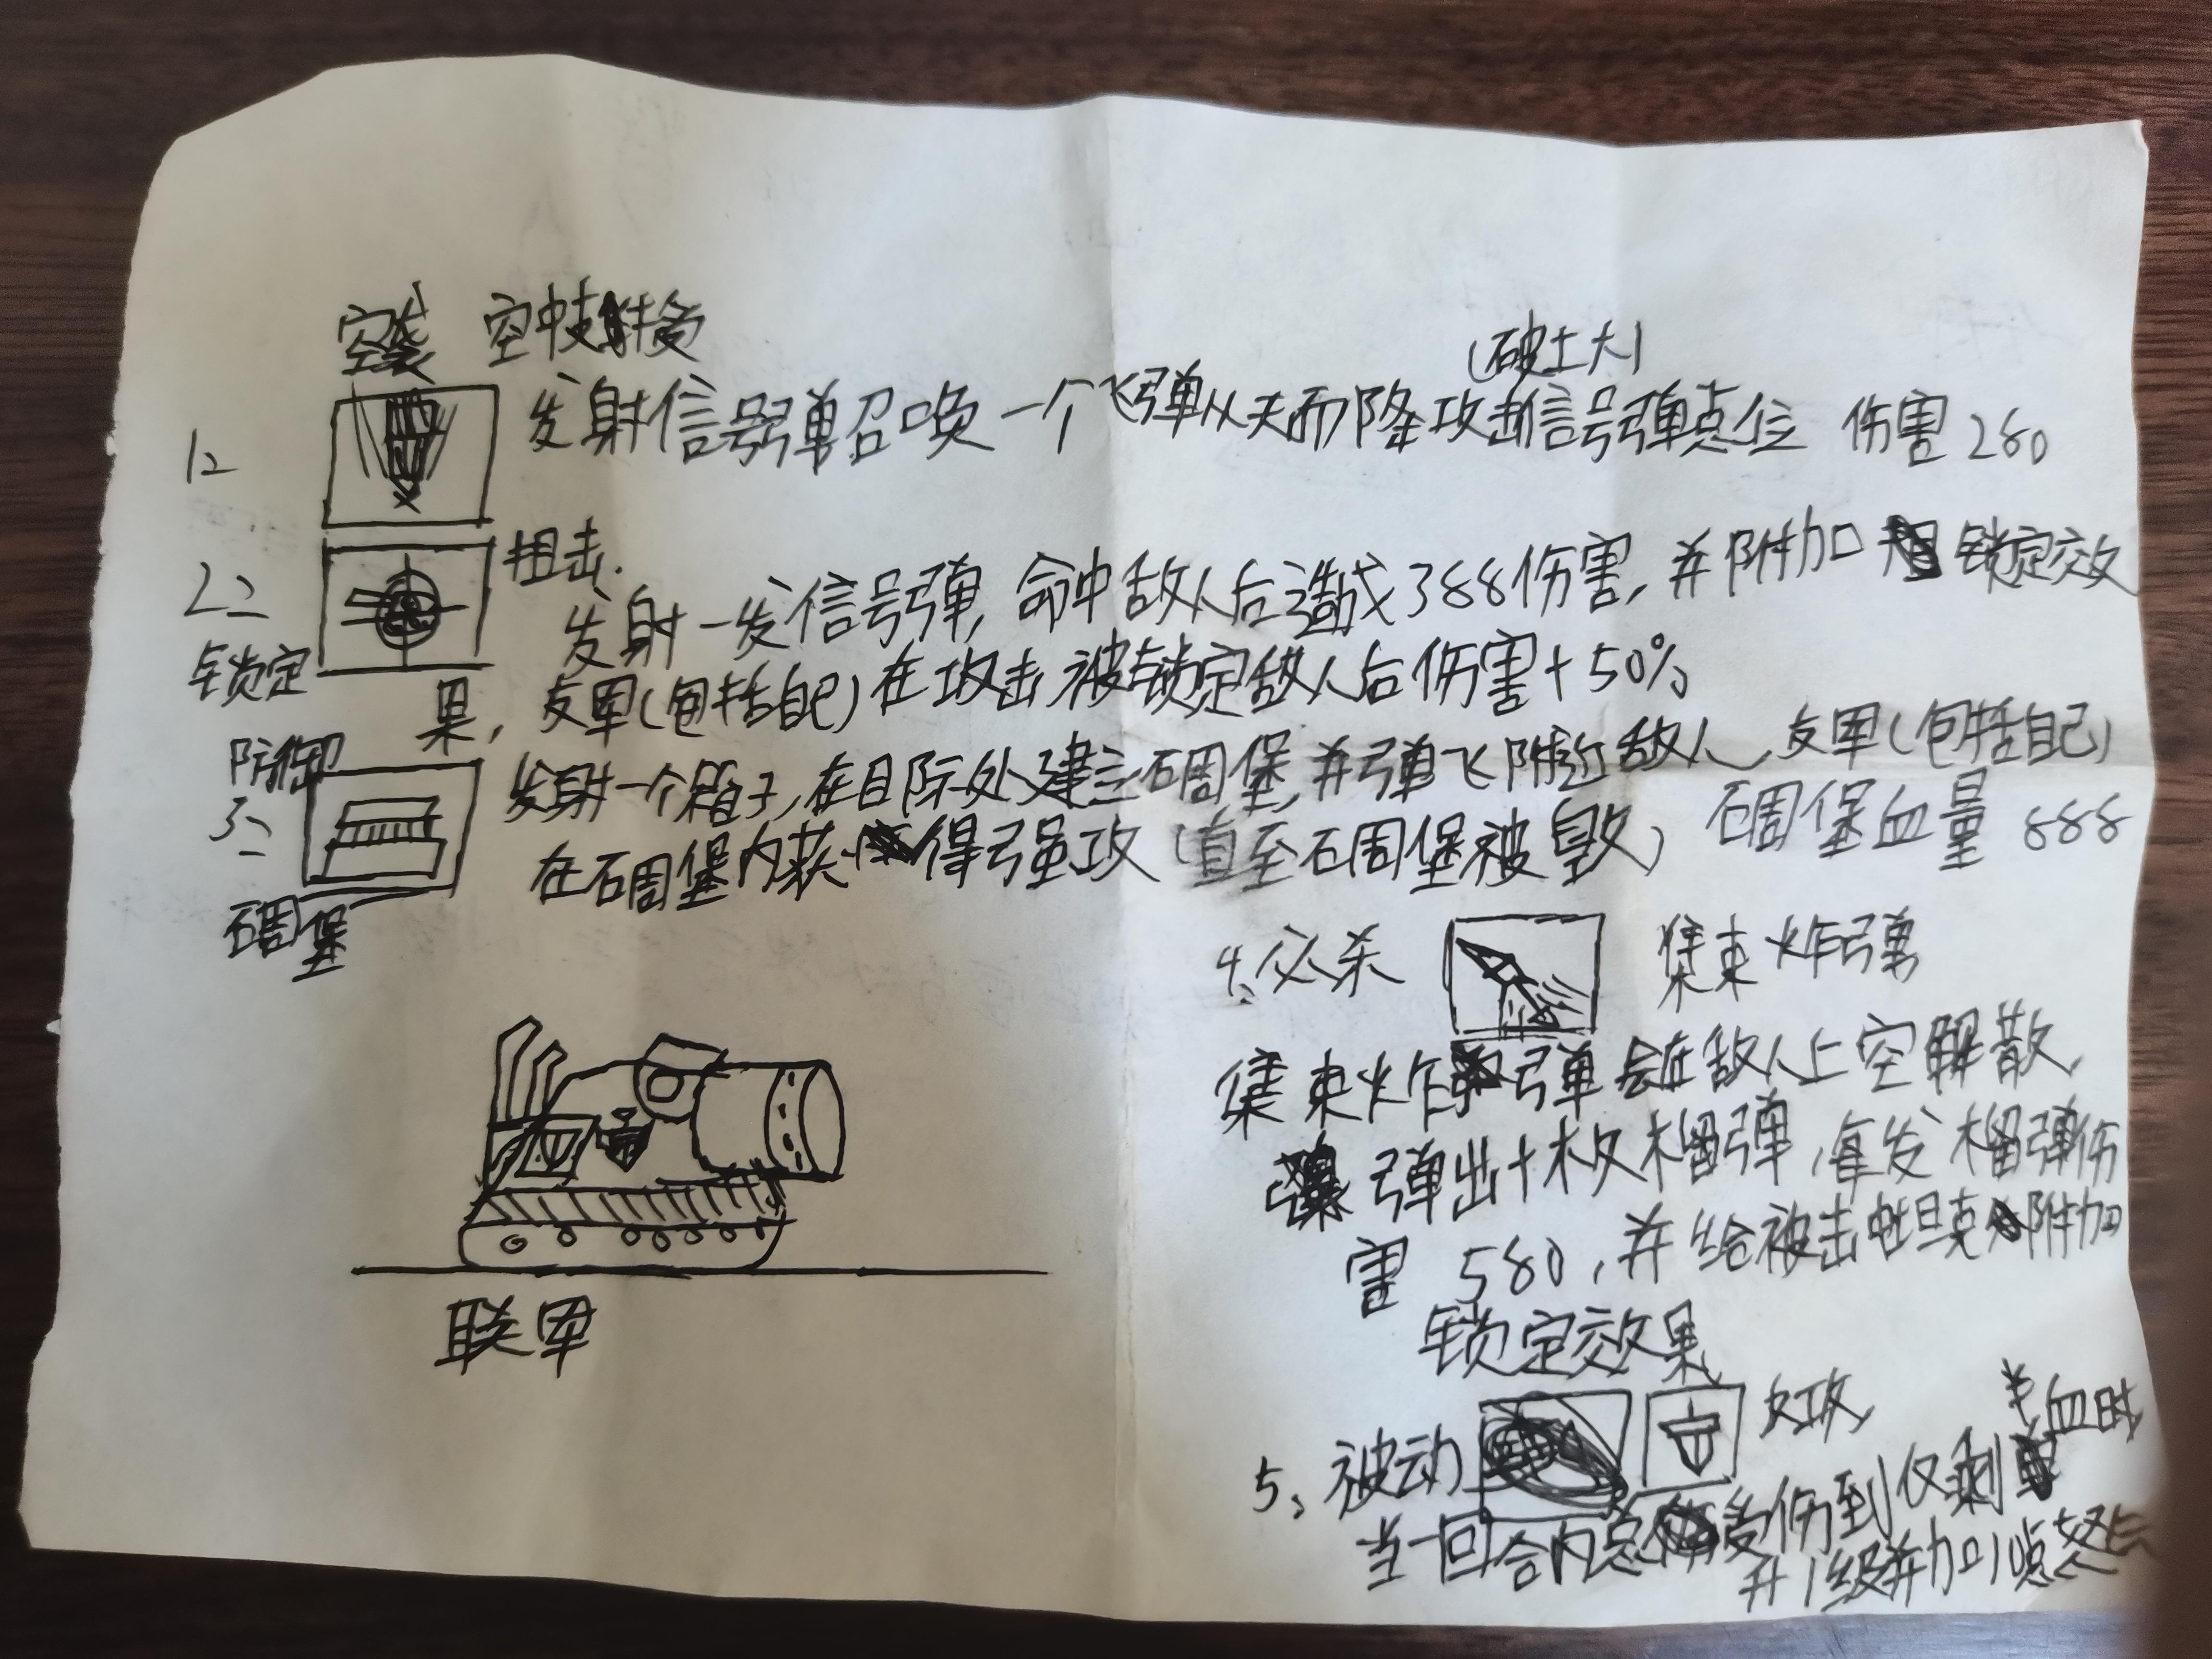 空袭 空中打击
(破土大)
1、 发射信号弹召唤一个飞弹从天而降攻击信号弹点位 伤害280
2、 狙击.
发射一发信号弹,命中敌人后造成388伤害,并附加锁定效
锁定
果,友军(包括自己)在攻击被锁定敌人后伤害+50%
防御
3、 发射一个箱子,在目标处建立碉堡,并弹飞附近敌人,友军(包括自己)
在碉堡内获得强攻(直至碉堡被毁) 碉堡血量888
碉堡
4、必杀 集束炸弹
集束炸弹会在敌人上空解散,
弹出十枚榴弹,每发榴弹伤
害580,并给被击坦克附加
锁定效果
联军
5、被动 攻 半血时
当一回合内总受伤到仅剩
升1级并加1点怒